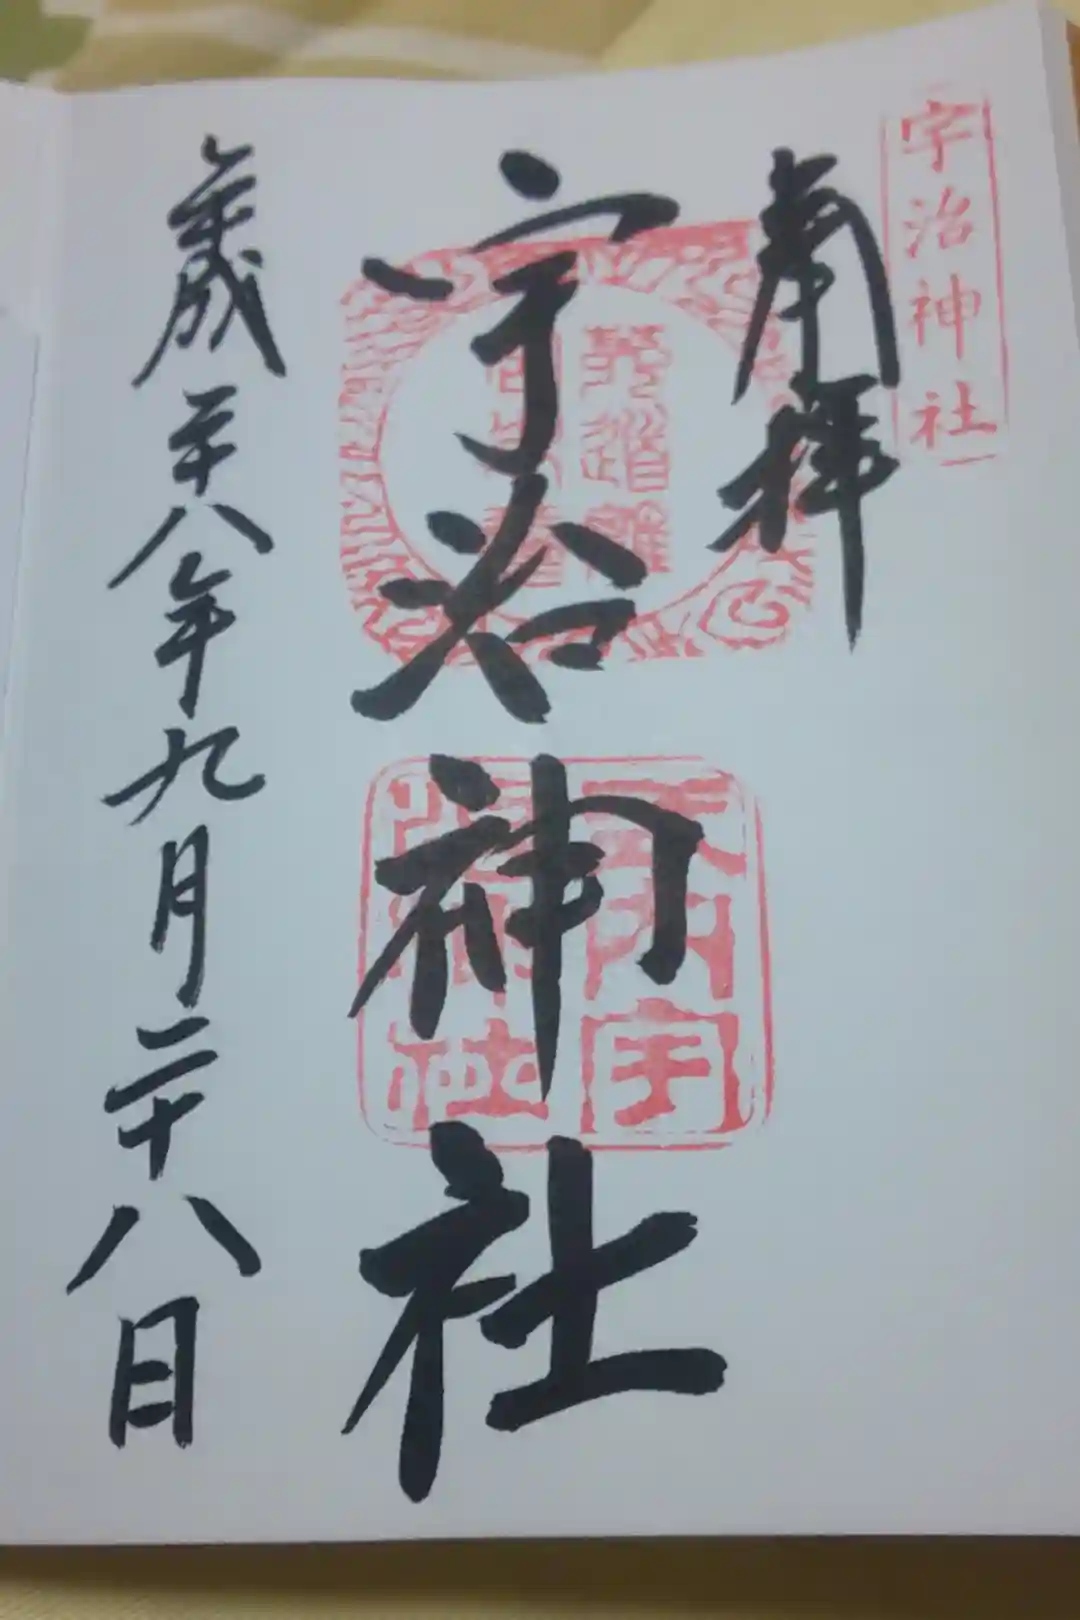 宇治神社
奉拝
菟道離
宇治神社
平成二十八年九月二十八日